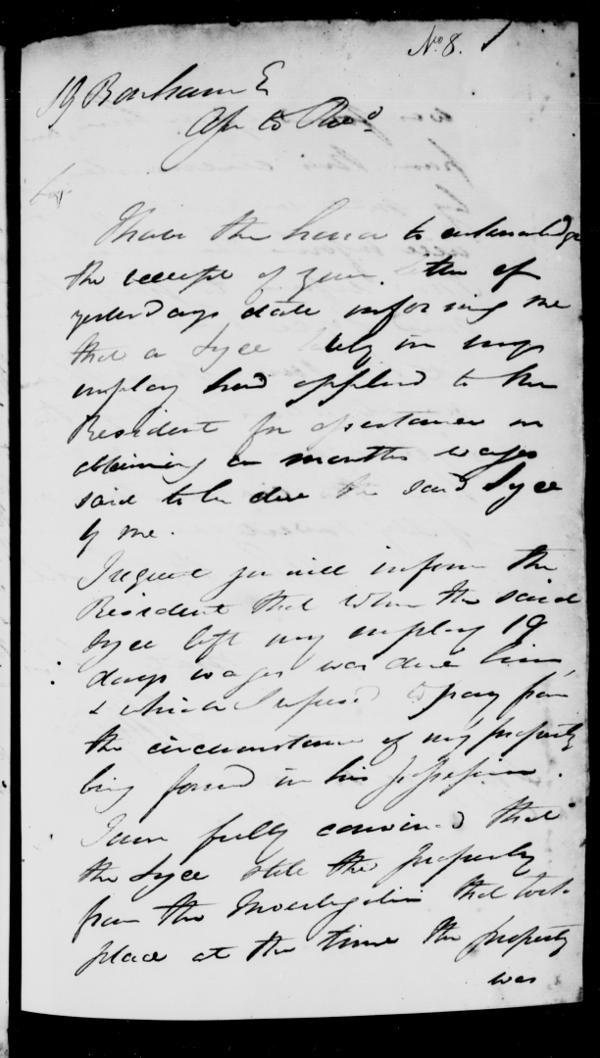 No. 8.
To Bonham E
Assr to Resdt
Sir
I have the honor to acknowledge
the receipt of your letter of
yesterdays date informing me
that a Syce lately in my
employ had applied to the
Resident for assistance in
obtaining a months wages
said to be due the said Syce
by me.
I request you will inform the
Resident that when the said
Syce left my employ 19
days wages was due him,
& which I refused to pay from
the circumstance of my property
being found in his possession.
I am fully convinced that
the Syce stole the property
from the Investigation that took
place at the time the property
was